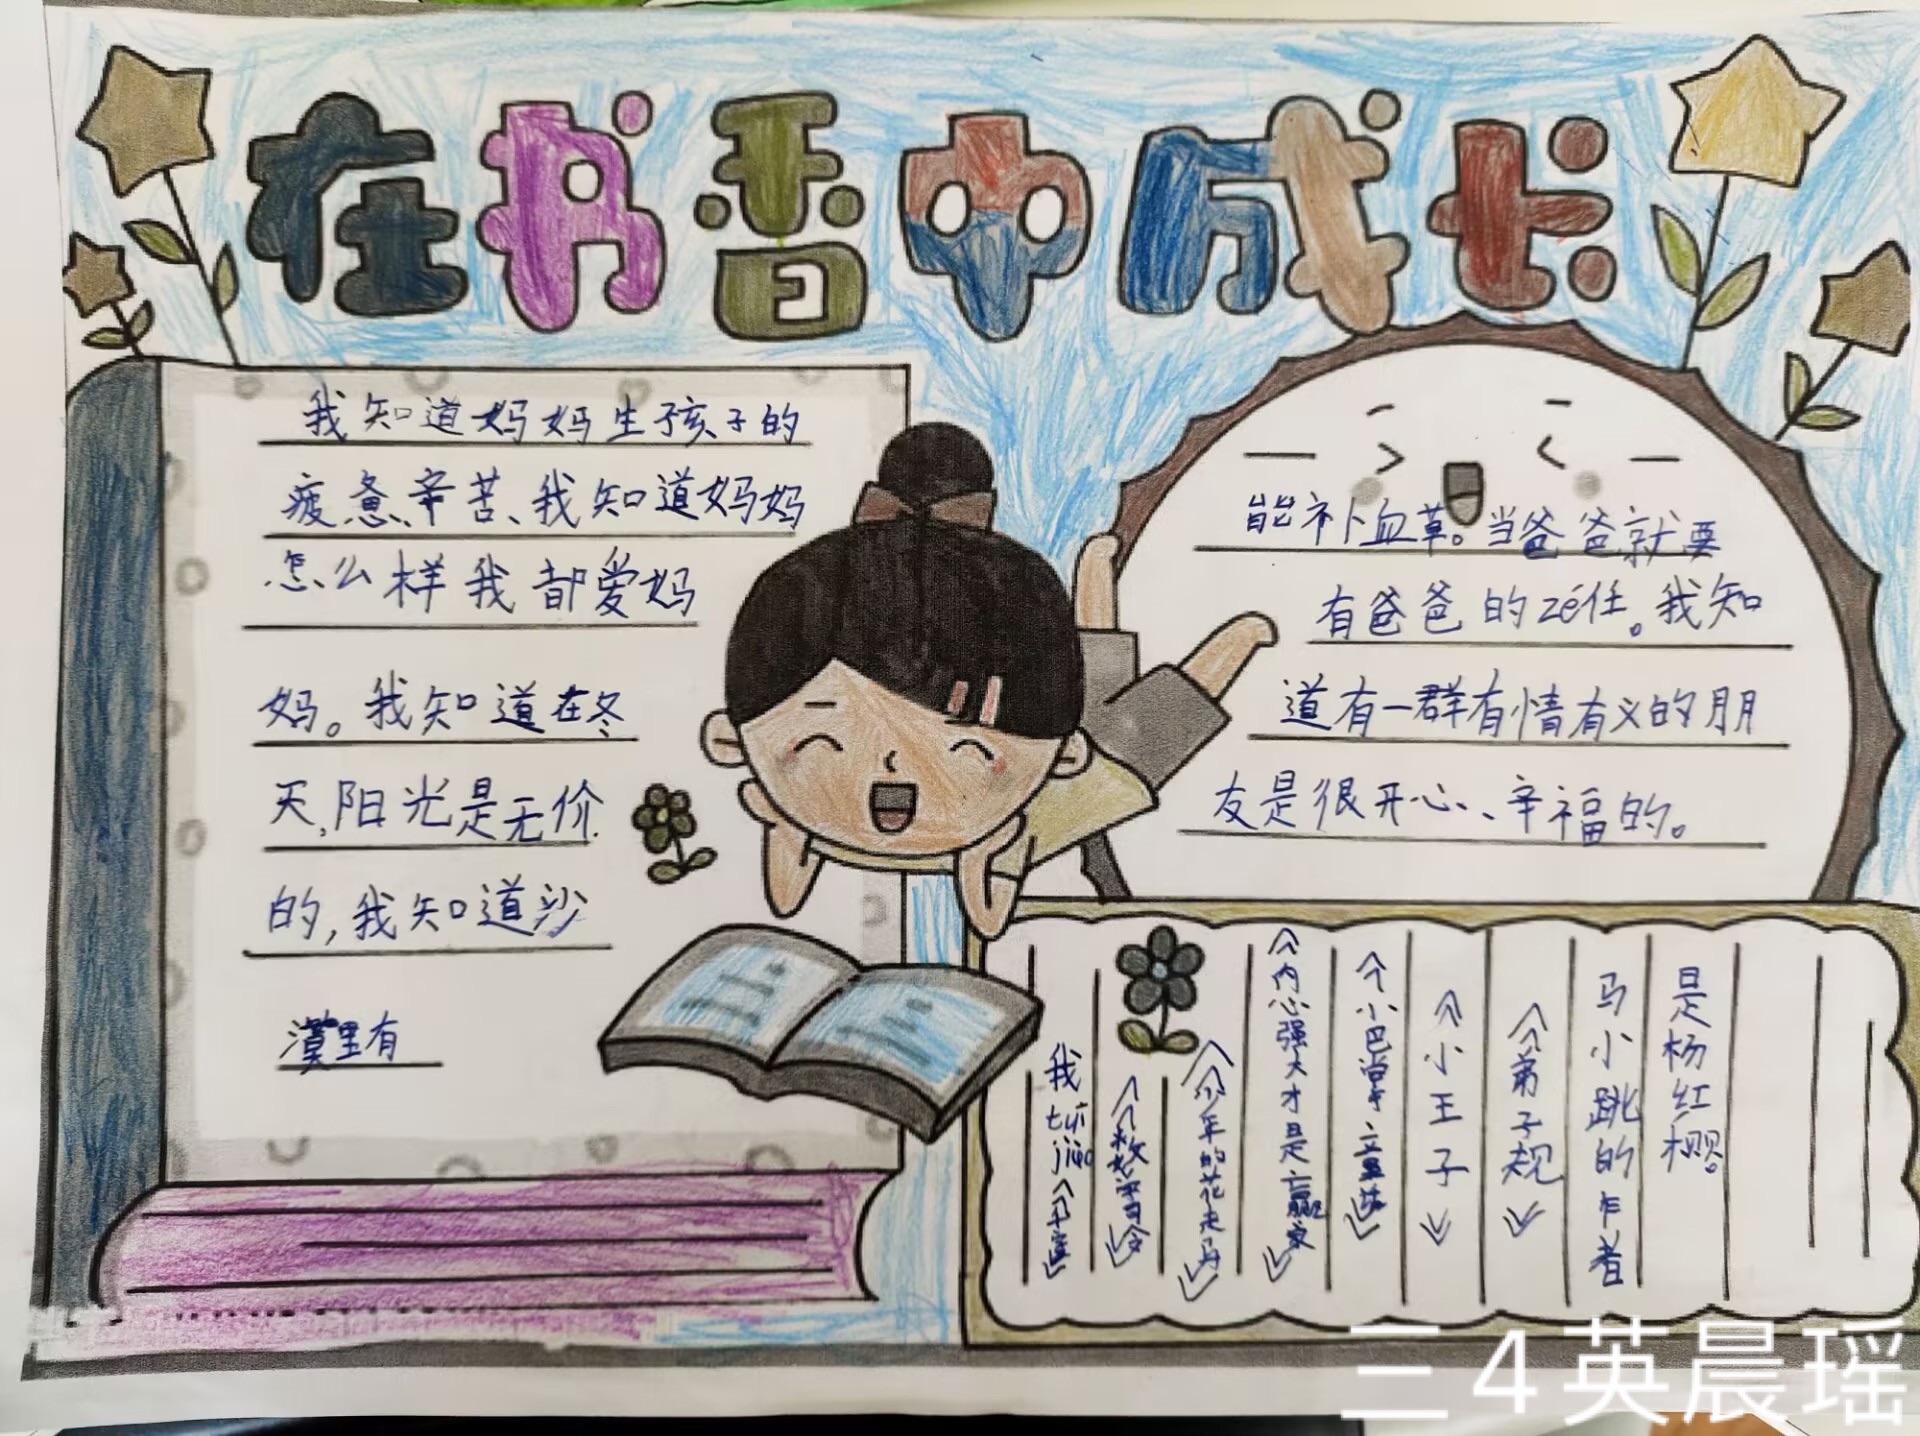 在书香中成长
我知道妈妈生孩子的
疲惫、辛苦、我知道妈妈
怎么样我都爱妈
妈。我知道在冬
天,阳光是无价
的,我知道沙
漠里有
能补血草。当爸爸就要
有爸爸的zé任。我知
道有一群有情有义的朋
友是很开心、辛福的。
我tuījiàn
《少年的花走
《内心强大才是赢家》
《小巴掌童话》
《小王子》
《弟子规》
马小跳的乍者
是杨红樱。
三4英晨瑶